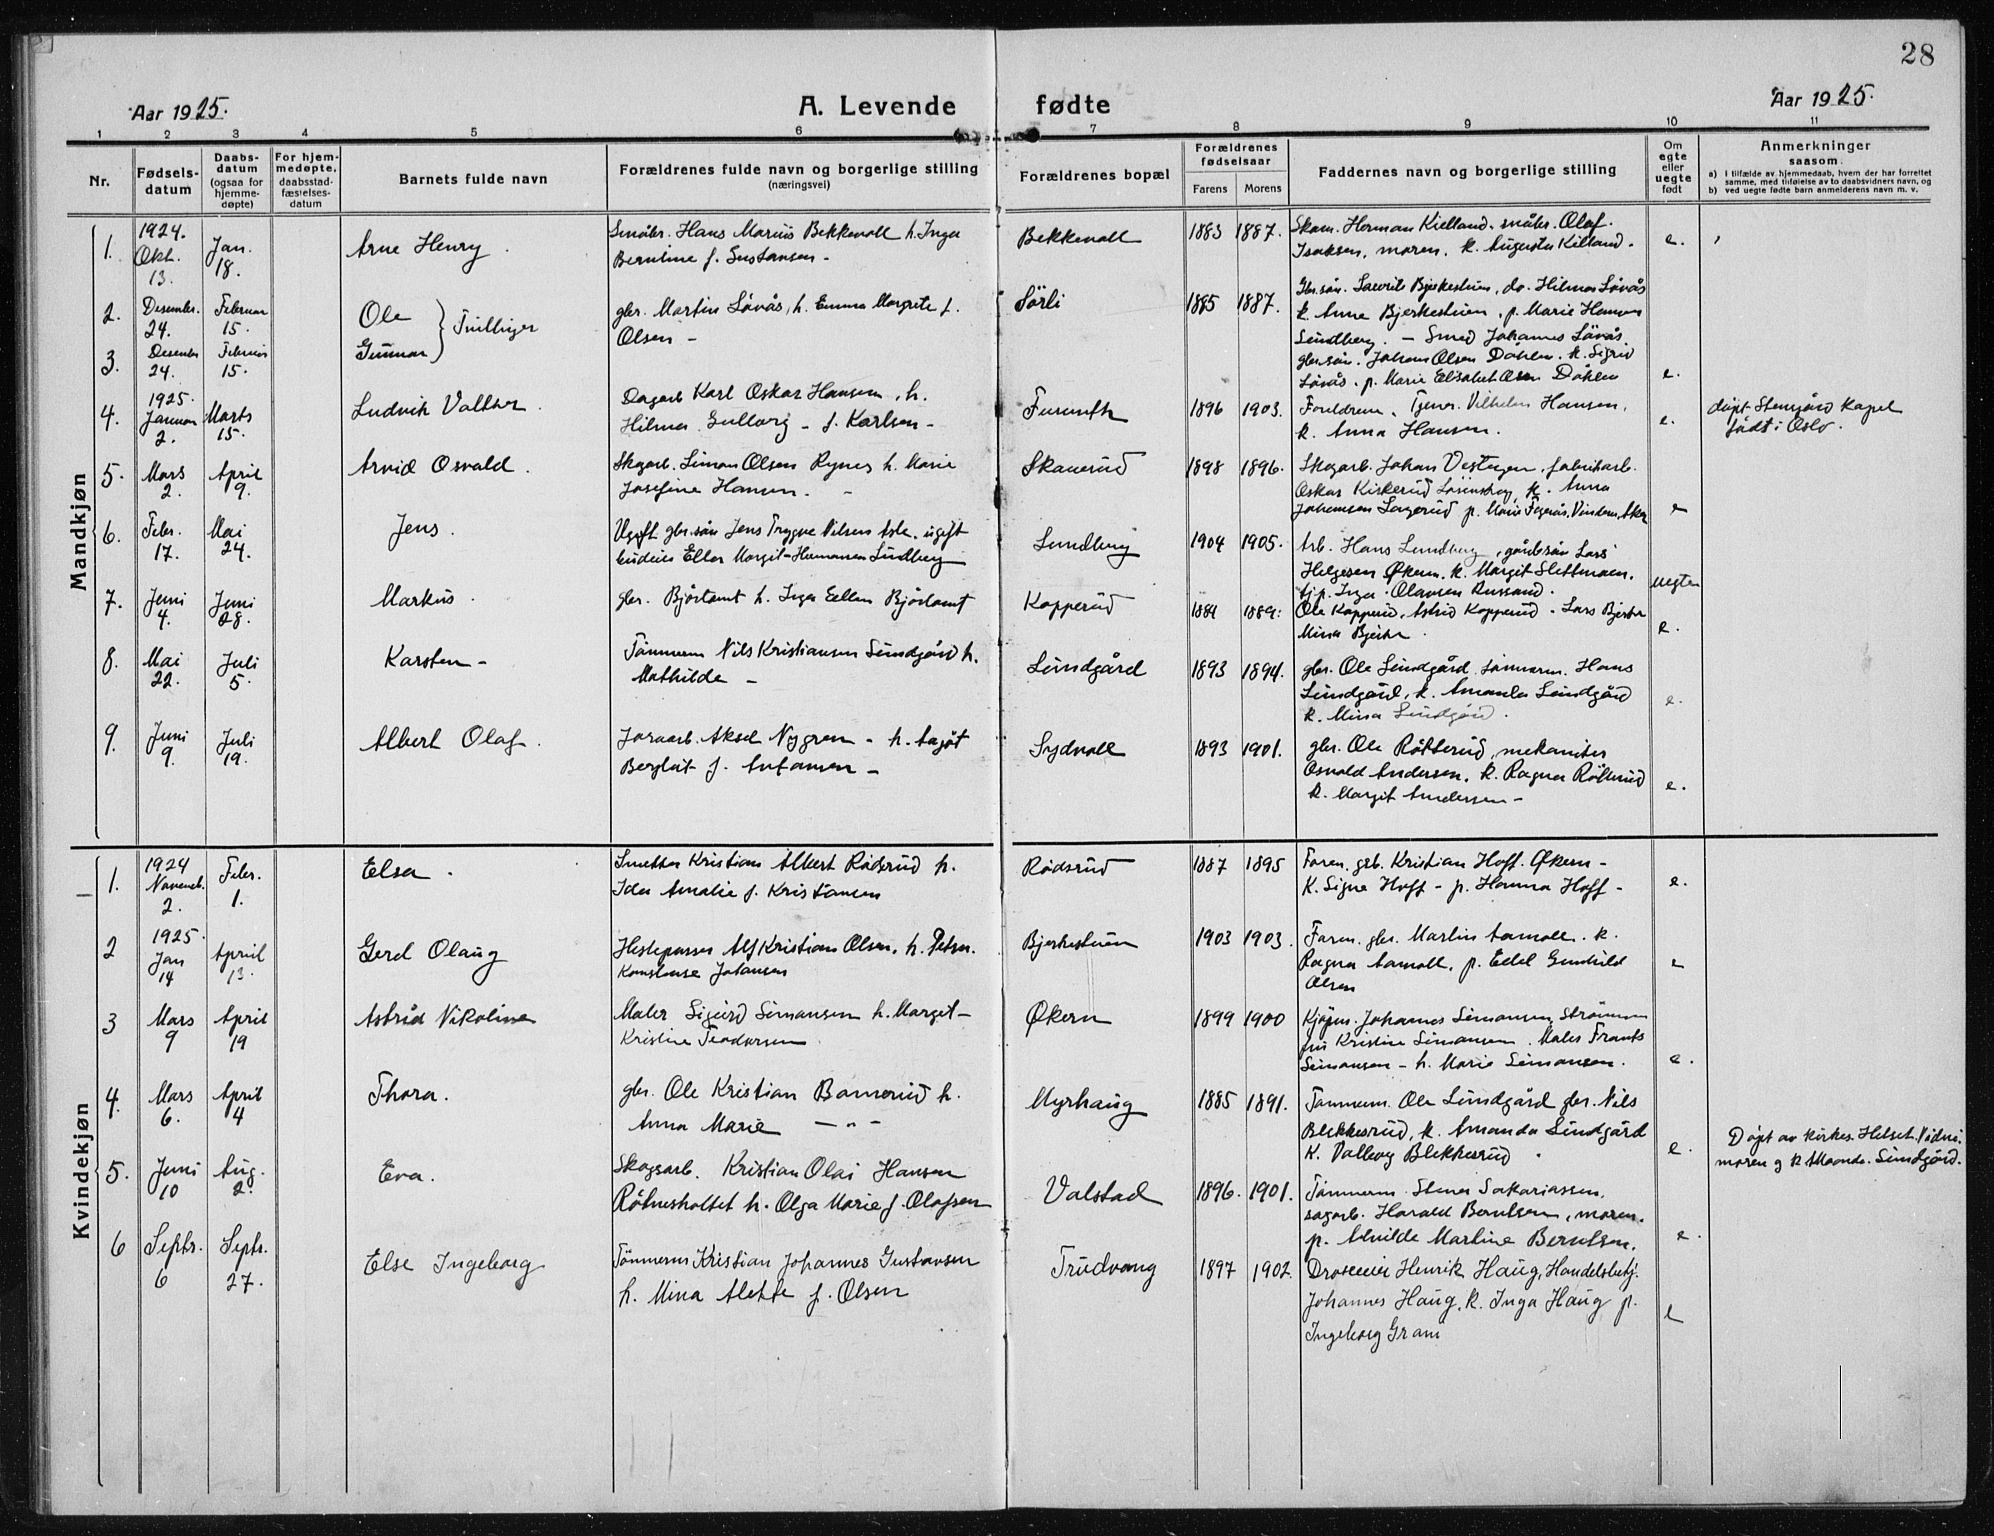 28
Aar 1925.
A. Levende fødte
Aar 1925.
1 2 3 4 5 6 7 8 9 10 11
Nr.
Fødsels-
datum
Daabs-
datum
(ogsaa for
hjemme-
døpte)
For hjem-
medøpte,
daabsstad-
fæstelses-
datum
Barnets fulde navn
Forældrenes fulde navn og borgerlige stilling
(næringsvei)
Forældrenes bopæl
Forældrenes
fødselsaar
Farens Morens
Faddernes navn og borgerlige stilling
Om
egte
eller
uegte
født
Anmerkninger
saasom.
a) I tilfælde av hjemmedaab, hvem der har forrettet
samme, med tilføielse av to daabsvidners navn, og
b) ved uegte født barn anmelderens navn m. v.
Mandkjøn
1.
1924.
Okt.
13.
Jan.
18.
Arne Henry.
Hans Marius Bekkevoll h. Inga
Berntine f. Gustavsen -
Bekkevoll
1883 1887.
Herman Kielland. Olaf
Isaksen, moren, k. Augusta Kielland.
e.
2.
Desember.
24.
Februar
15.
Ole
3.
Desember
24.
Februar
15.
Gunnar
Tvillinger
gbr. Martin Løvås, h. Emma Margrete f.
Olsen -
Sørli
1885 1887.
Gbr.søn. Lauritz Bjerkestuen, do. Hilmar Løvås
k. Anna Bjerkestuen, p. Marie Hansen
Lundberg. - Smed Johannes Løvås.
gbr.søn. Johan Olsen Dahlen. k. Sigrid
Løvås. p. Marie Elisabet Olsen Dåhlen
e.
4.
1925.
Januar
2.
Marts
15.
Ludvik Valther.
Dagarb Karl Oskar Hansen, h.
Hilma Gullborg - f. Karlsen -
Furutoft
1896 1903.
Foreldrene, Tjener. Vilhelm Hansen,
k. Anna Hansen.
e.
døpt Stensgård Kapel
født i Oslo.
5.
Mars
2.
April
9.
Arvid Osvald.
Skogarb. Simon Olsen Rynes h. Marie
Josefine Hansen.
Skauerud
1898 1896.
Skogarb. Johan Vestengen, fabrikarb.
Oskar Kirkerud k. Anna
Johansen Lagerud p. Marie Fagerås, Vinderen, Aker
e
6.
Febr.
17.
Mai
24.
Jens.
Ugift gbr.søn Jens Trygve Nilsen Asle, ugift
budeie Ella Margit Hermansen Lundberg
Lundberg
1904 1905.
Arb. Hans Lundberg, gårdsøn Lars
Helgesen Økern. k. Margit Slettmoen.
tj.p. Inga Olausen Russand.
uegte
7.
Juni
4.
Juni
28.
Markus.
gbr. Bjørtomt h. Inga Ellen Bjørtomt
Kopperud
1884 1889.
Ole Kopperud, Astrid Kopperud. Lars Bjerke
Mina Bjerke.
e.
8.
Mai
22.
Juli
5.
Karsten -
Tømmerm Nils Kristiansen Lundgård h.
Mathilde -
Lundgård
1893 1894.
gbr. Ole Lundgård tømmerm. Hans
Lundgård, k. Amanda Lundgård
k. Mina Lundgård.
e.
9.
Juni
9.
Juli
19.
Albert Olaf.
Jernarb. Aksel Nygren - h. Aagot
Bergliot f. Antonsen -
Sydvoll
1893 1901.
gbr. Ole Råtterud, mekaniker
Osvald Andersen, k. Ragna Råtterud
k. Margit Andersen -
e.
Kvindekjøn
1.
1924
Novemb.
2.
Febr.
1.
Elsa.
Kristian Albert Rødsrud h.
Ida Amalie f. Kristiansen
Rødsrud
1887 1895
Faren, gbr. Kristian Hoff. Økern -
K. Signe Hoff - p. Hanna Hoff -
e.
2
1925.
Jan
14
April
13.
Gerd Olaug
Hestepasser Alf Kristian Olsen, h. Petra
Konstanse Johansen
Bjerkestuen
1903 1903.
Faren. gbr. Martin Aamoll. k.
Ragna Aamoll, p. Edel Gunhild
Olsen
e
3
Mars
9
April
19
Astrid Nikoline
Maler Sigurd Simansen h. Margit
Kristine Teodorsen
Økern
1899 1900
Kjøpm. Johannes Simansen, Strømmen
fru Kristine Simansen. Maler Frants
Simansen - h. Marie Simansen.
e.
4.
Mars
6.
April
4
Thora.
gbr. Ole Kristian Bamerud h.
Anna Marie - " -
Myrhaug
1885 1891.
Tømmerm. Ole Lundgård gbr. Nils
Blekkerud, k. Amanda Lundgård
k. Valborg Blekkerud
e.
Døpt av kirkes. Helset. Vidner
moren og k. Amanda Lundgård.
5.
Juni
10
Aug.
2.
Eva.
Skogsarb. Kristian Olai Hansen
Råtnesholtet h. Olga Marie f. Olafsen
Valstad
1896. 1901.
Tømmerm. Stener Sakariassen,
sagarb. Harald Berntsen, moren.
p. Alvilde Martine Berntsen.
e.
6
Septr.
6
Septr.
27.
Else Ingeborg
Tømmerm Kristian Johannes Gustavsen
h. Mina Alette f. Olsen
Trudvang
1897 1902.
Droseeier Henrik Haug, Handelsbetj.
Johannes Haug, k. Inga Haug p.
Ingeborg Gram
e